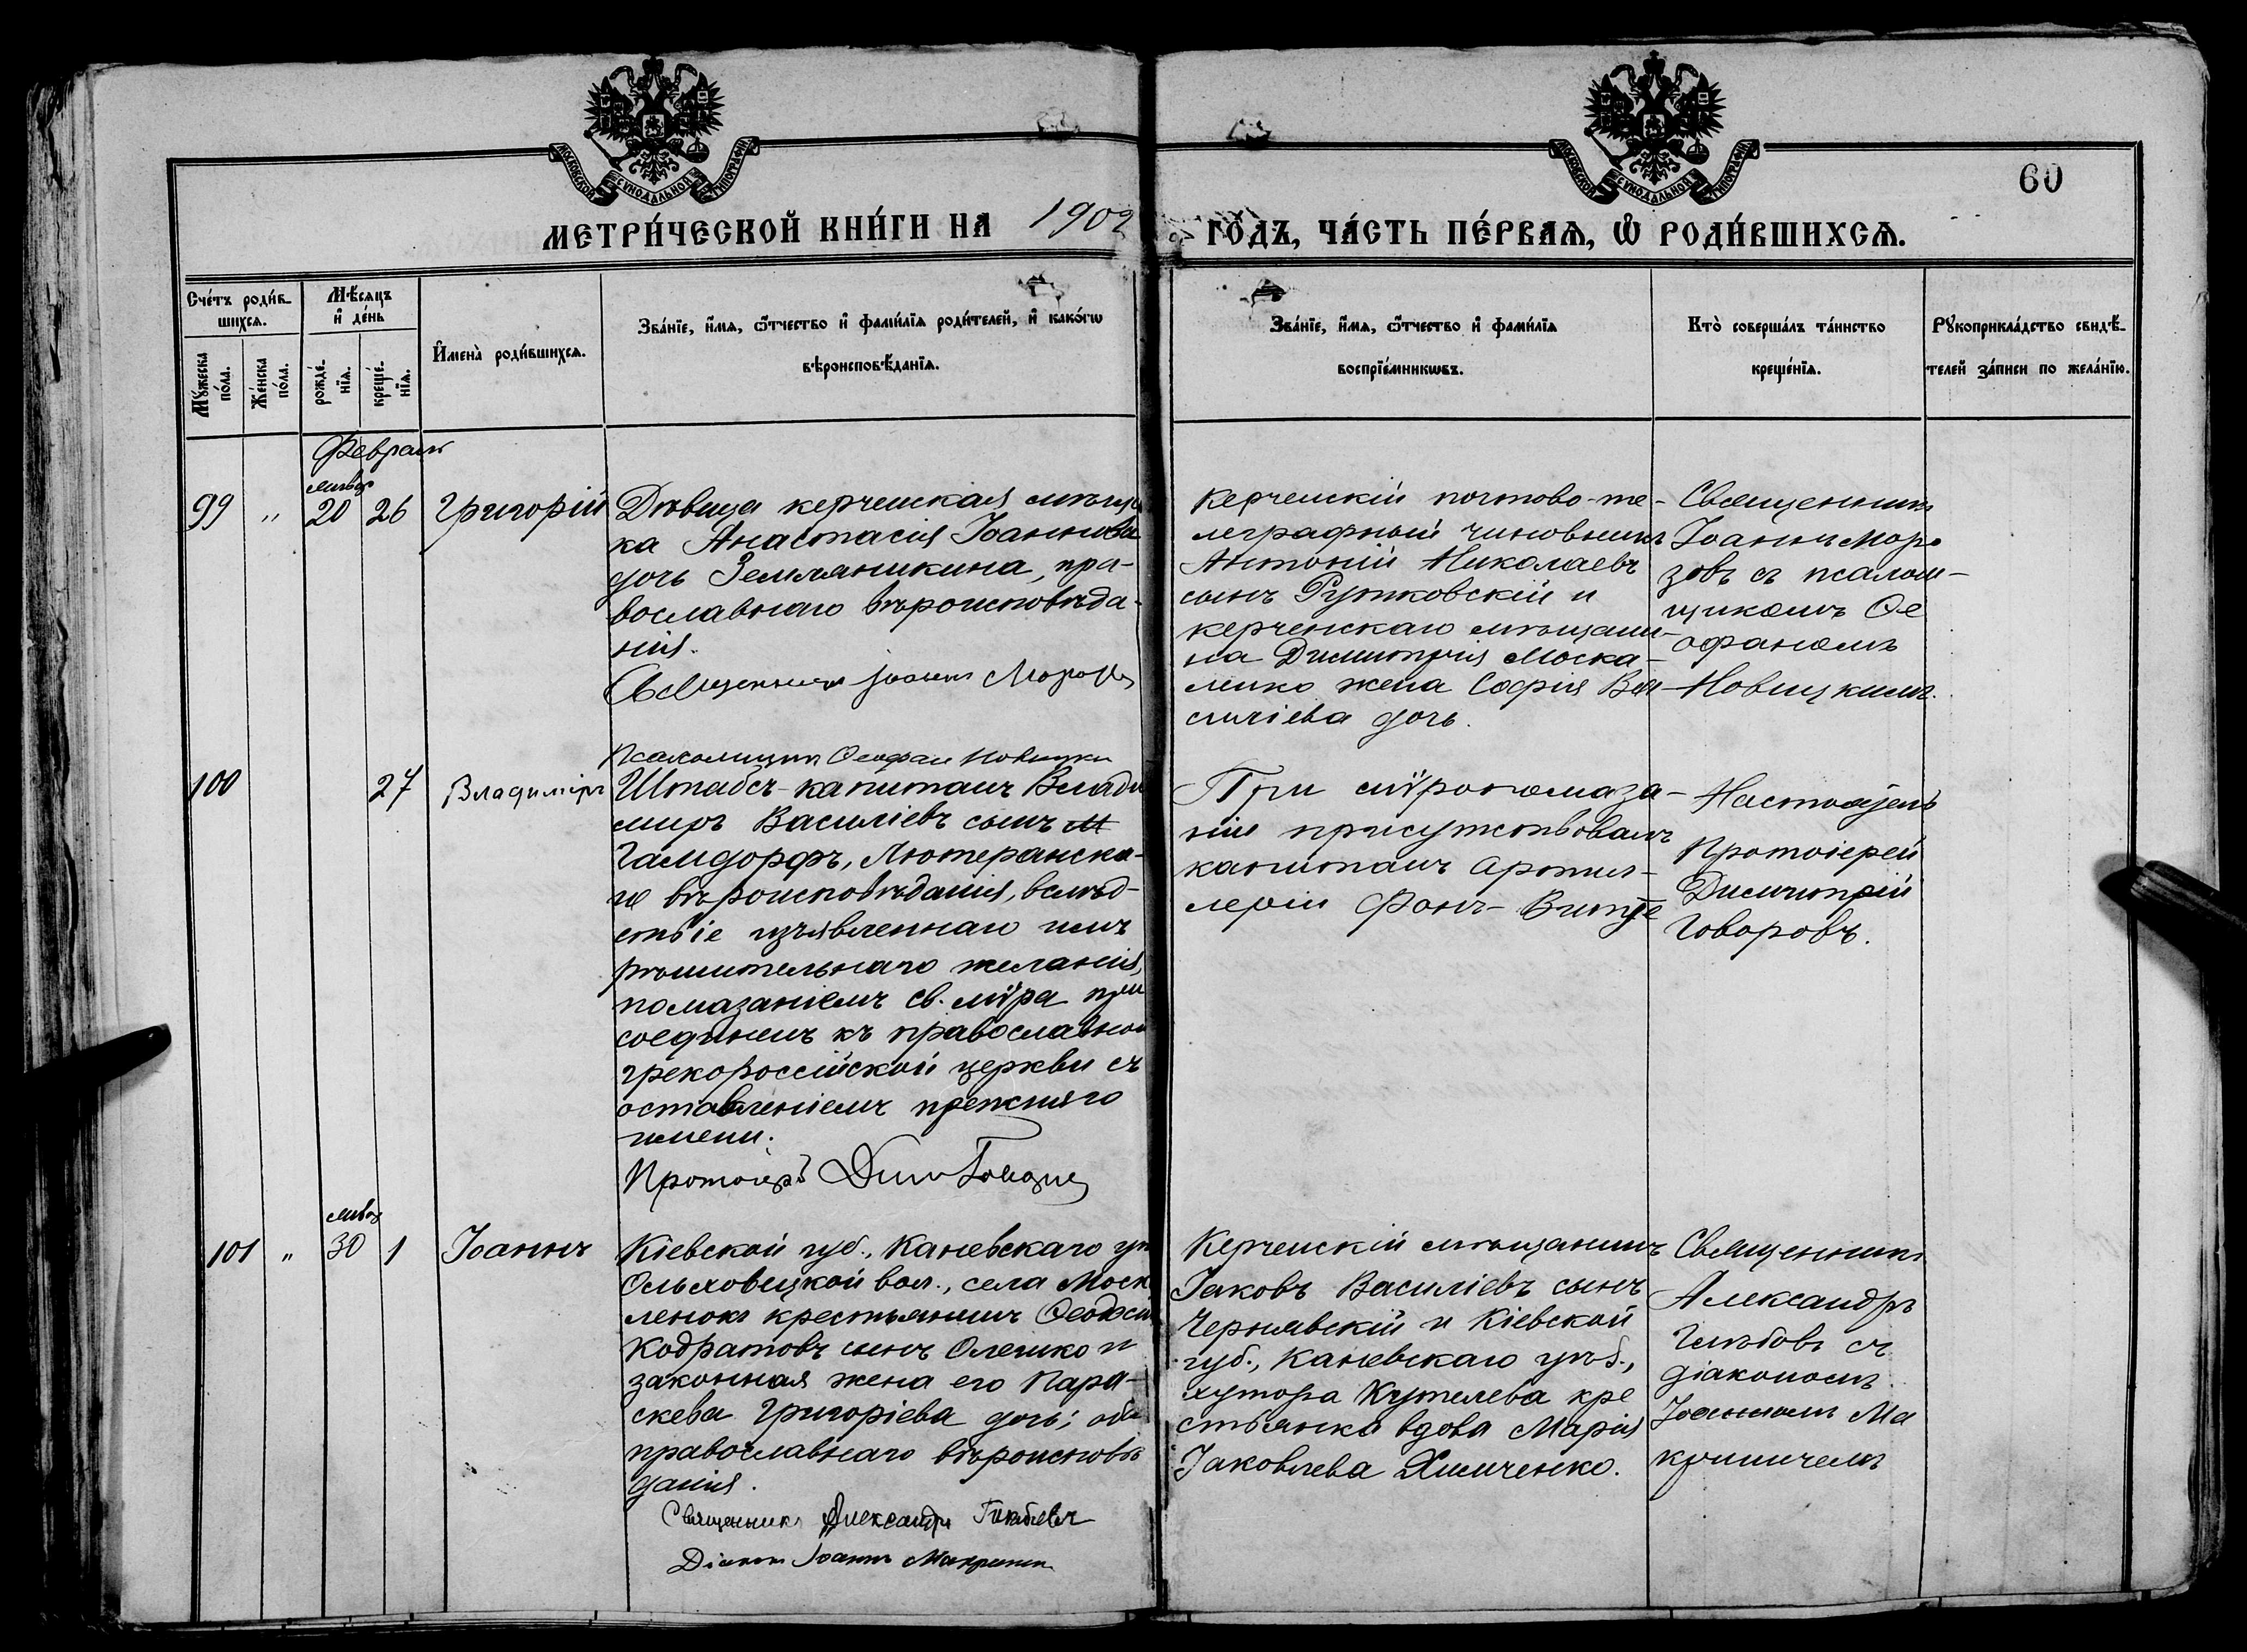 МОСКОВСКОЙ СУНОДАЛЬНОЙ ТИПОГРАФІИ
МОСКОВСКОЙ СУНОДАЛЬНОЙ ТИПОГРАФІИ
60
МЕТРИ́ЧЕСКОЙ КНИ́ГИ НА 1902 ГО́ДЪ, ЧА́СТЬ ПЕ́РВАѦ, Ѡ҆ РОДИ́ВШИХСѦ.
Сче́тъ роди́в-
шихсѧ.
Мꙋ́жеска
по́ла.
Же́нска
по́ла.
Мѣ́сѧцъ
и҆ де́нь
рожде́-
нїѧ.
креще́-
нїѧ.
И҆мена̀ роди́вшихсѧ.
Зва́нїе, и҆́мѧ, ѻ҆́тчество и҆ фами́лїѧ роди́телей, и҆ како́гѡ
вѣроисповѣ́данїѧ.
Зва́нїе, и҆́мѧ, ѻ҆́тчество и҆ фами́лїѧ
воспрїе́мникѡвъ.
Кто̀ соверша́лъ та́инство
креще́нїѧ.
Рꙋкоприкла́дство свидѣ́-
телей за́писи по жела́нїю.
Февраль
99 " 20 26 Григорій
Дѣвица керченская мѣщан
ка Анастасія Іоаннова
дочь Земляникина, пра-
вославнаго вѣроисповѣда-
нія.
Священникъ Іоаннъ Морозовъ
Псаломщикъ Ѳеофан Новицкій
Керченскій почтово-те-
леграфный чиновникъ
Антоній Николаевъ
сынъ Рутковскій и
керченскаго мѣщани-
на Димитрія Моска-
ленко жена Софія Ва-
силіева дочь.
Священникъ
Іоаннъ Моро
зовъ съ псалом-
щикомъ Ѳе
офаномъ
Новицкимъ.
100 27 Владиміръ
Штабсъ-капитанъ Влади
миръ Василіевъ сынъ
Гамдорфъ, Лютеранска-
го вѣроисповѣданія, вслѣд-
ствіе изъявленнаго имъ
рѣшительнаго желанія,
помазаніемъ св. мѵра при
соединенъ къ православной
грекороссійской церкви съ
оставленіемъ прежняго
имени.
Протоіерей Дим Говоровъ
При мѵропомаза-
ніи присутствовалъ
капитанъ Артил-
леріи Фонъ-Витте
Настоятель
Протоіерей
Димитрій
Говоровъ.
101 " 30 1 Іоаннъ
Кіевской губ., Каневскаго уѣ
Ольховецкой вол., села Моск
ленокъ крестьянинъ Ѳеодосій
Кодратовъ сынъ Олешко и
законная жена его Пара-
скева Григоріева дочь; оба
православнаго вѣроисповѣ
данія.
Священникъ Александръ Глѣбовъ
Діаконъ Іоаннъ Макринич
Керченскій мѣщанинъ
Іаковъ Василіевъ сынъ
Чернявскій и Кіевской
губ., Каневскаго уѣз.,
хутора Кутелева кре
стьянка вдова Марія
Іаковлева Химченко.
Священникъ
Александръ
Глѣбовъ съ
діакономъ
Іоанномъ Ма
криничемъ